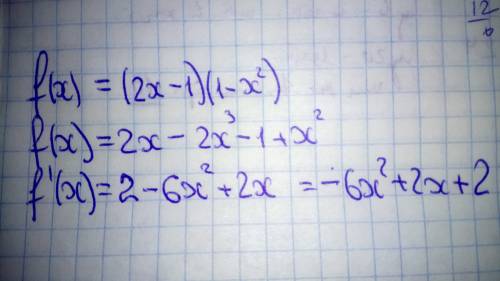 12
f(x) = (2x-1)(1-x²)
f(x) = 2x - 2x³ - 1 + x²
f'(x) = 2 - 6x² + 2x = -6x² + 2x + 2